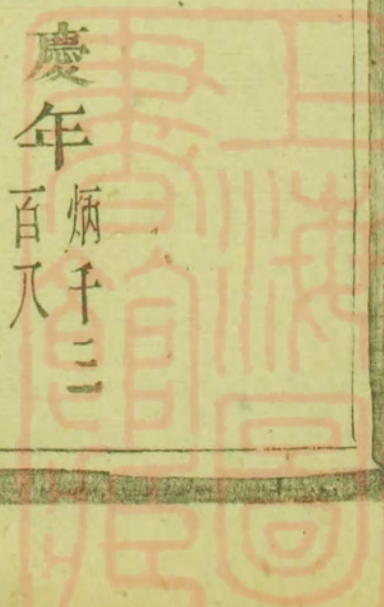 慶年
炳千二
百八
上海圖
書館藏